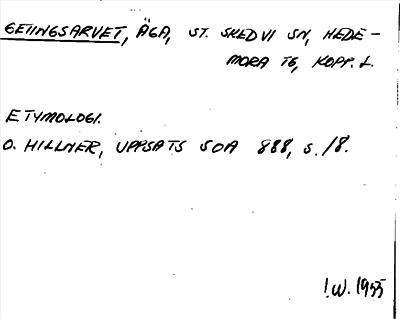 GETINGSARVET, ÄGA, ST. SKEDVI SN, HEDE-
MORA TG, KOPP. L.
ETYMOLOGI.
O. HILLNER, UPPSATS SOA 888, S. 18.
I.W. 1955